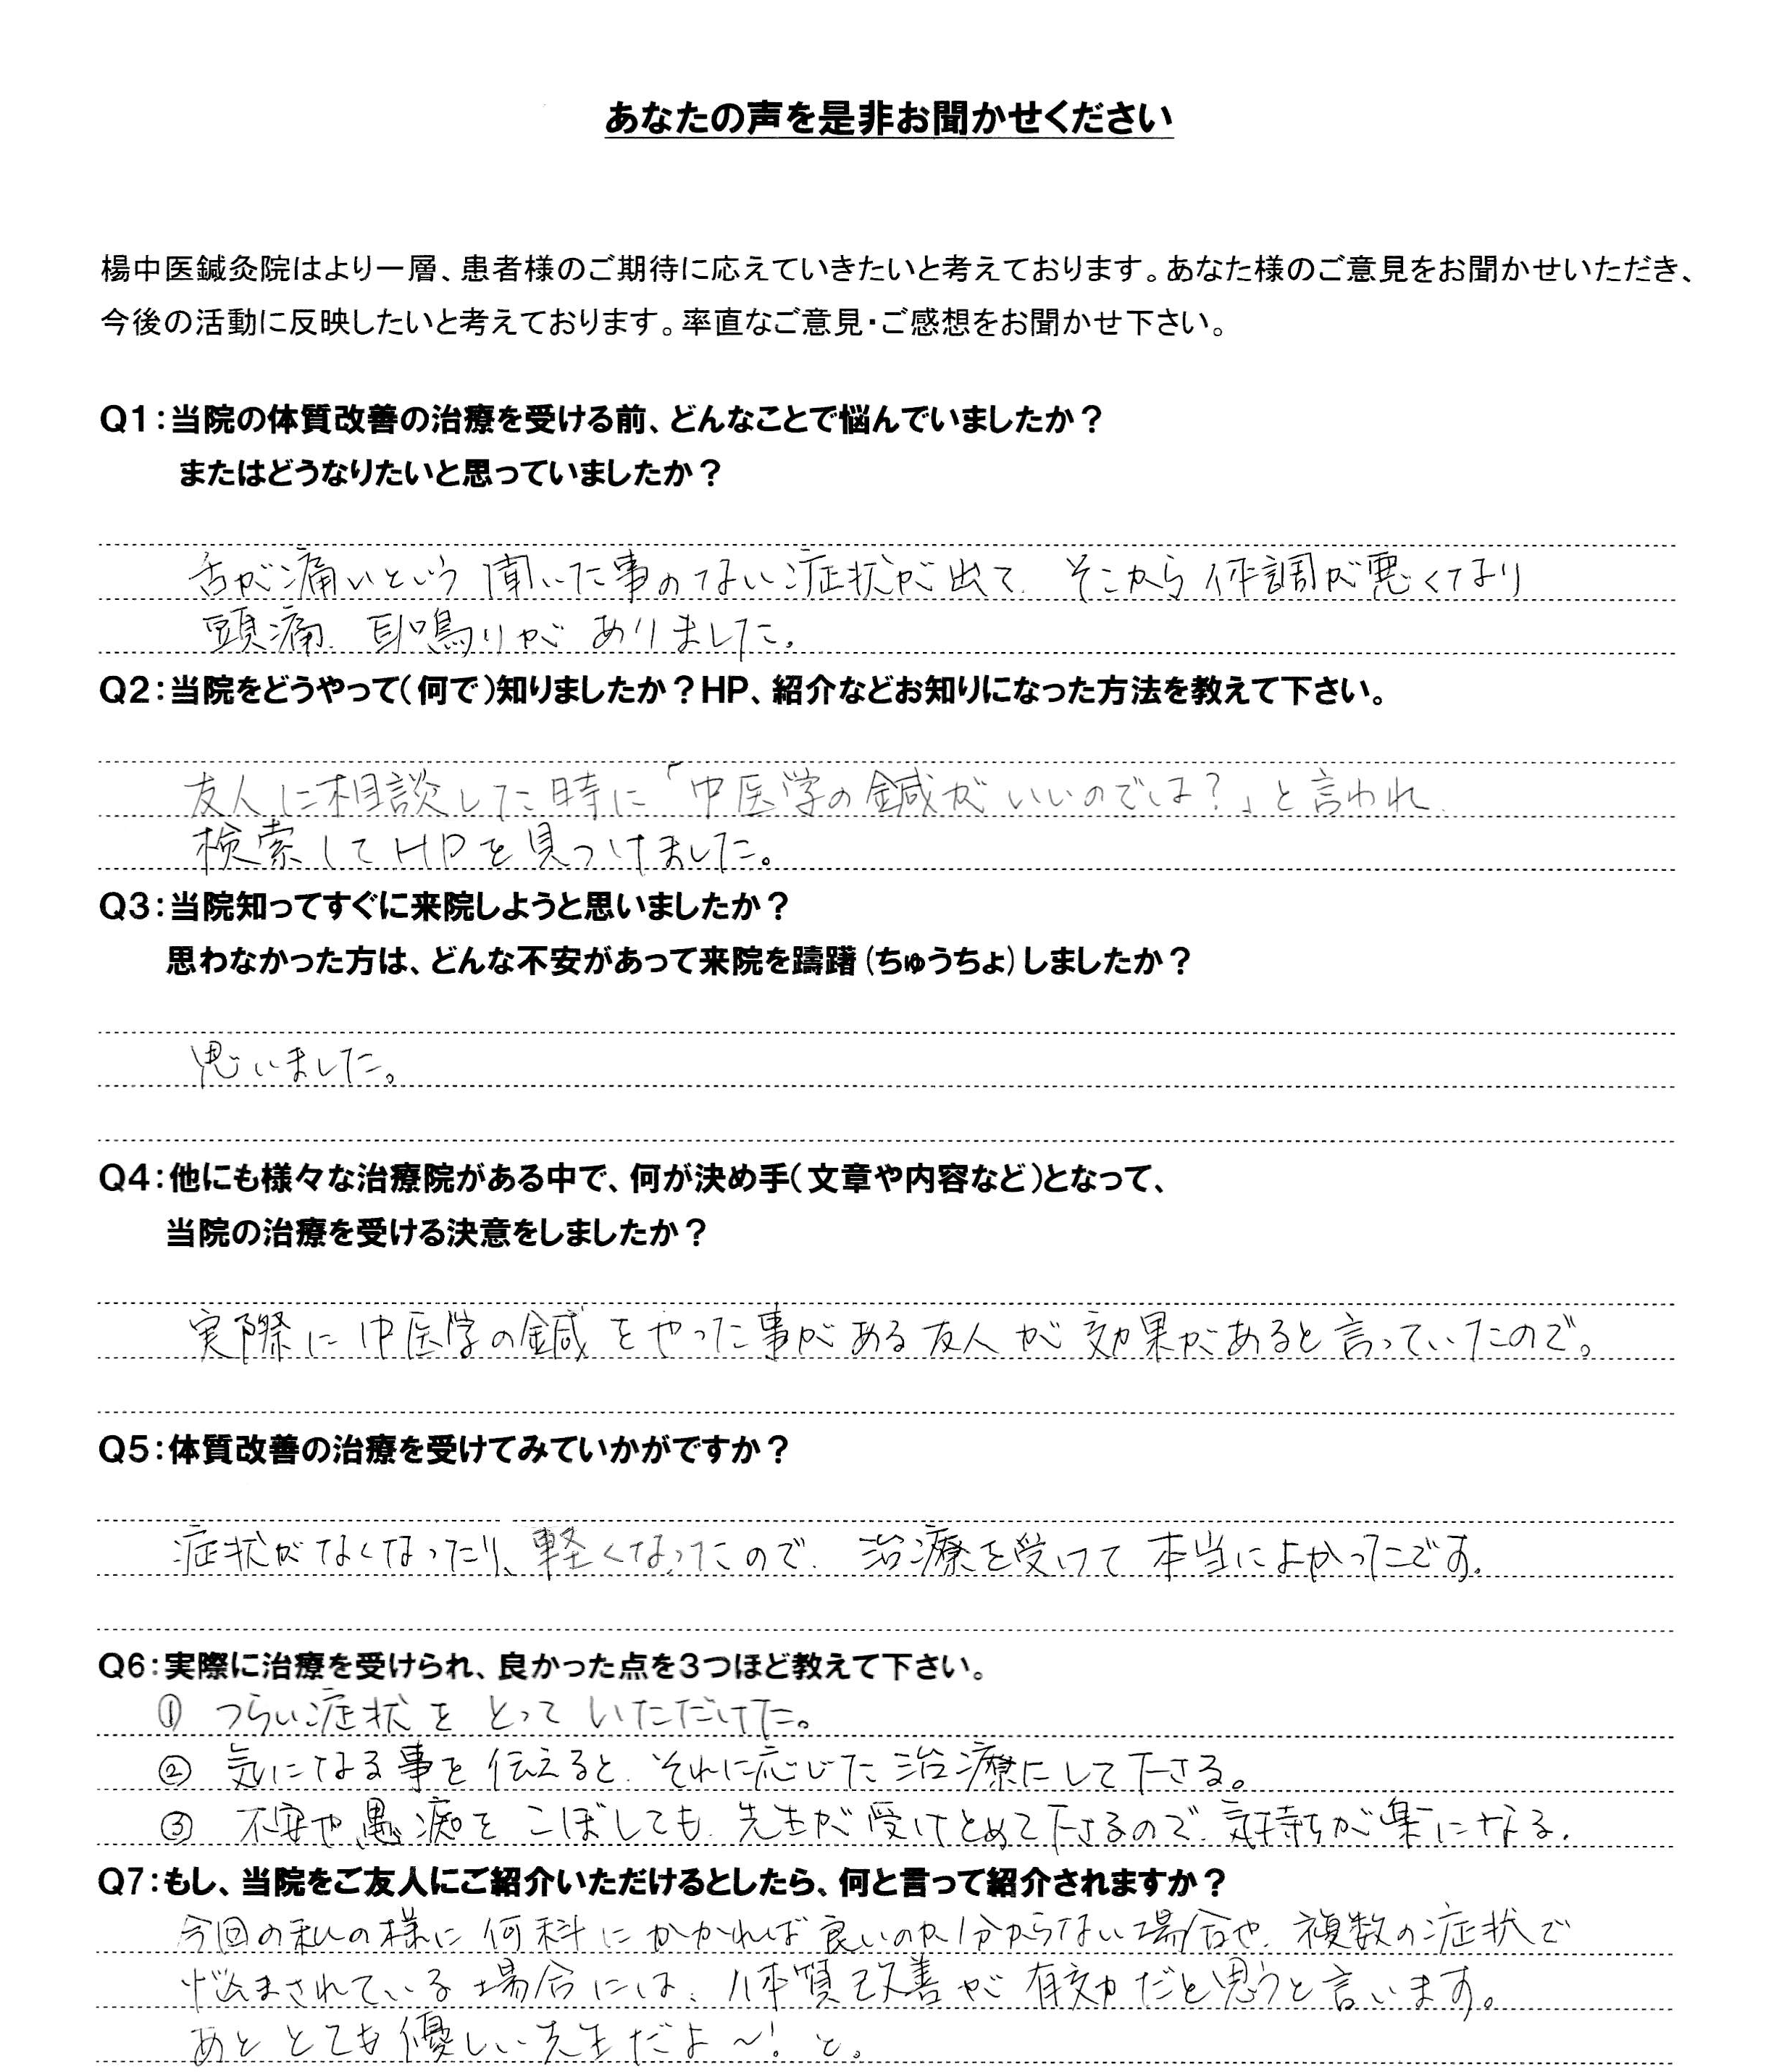 あなたの声を是非お聞かせください
楊中医鍼灸院はより一層、患者様のご期待に応えていきたいと考えております。あなた様のご意見をお聞かせいただき、
今後の活動に反映したいと考えております。率直なご意見・ご感想をお聞かせ下さい。
Q1：当院の体質改善の治療を受ける前、どんなことで悩んでいましたか？
またはどうなりたいと思っていましたか？
舌が痛いという聞いた事のない症状が出て、そこから体調が悪くなり
頭痛、耳鳴りがありました。
Q2：当院をどうやって（何で）知りましたか？HP、紹介などお知りになった方法を教えて下さい。
友人に相談した時に「中医学の鍼がいいのでは？」と言われ、
検索してHPを見つけました。
Q3：当院知ってすぐに来院しようと思いましたか？
思わなかった方は、どんな不安があって来院を躊躇（ちゅうちょ）しましたか？
思いました。
Q4：他にも様々な治療院がある中で、何が決め手（文章や内容など）となって、
当院の治療を受ける決意をしましたか？
実際に中医学の鍼をやった事がある友人が効果があると言っていたので。
Q5：体質改善の治療を受けてみていかがですか？
症状がなくなったり、軽くなったので、治療を受けて本当によかったです。
Q6：実際に治療を受けられ、良かった点を3つほど教えて下さい。
① つらい症状をとっていただけた。
② 気になる事を伝えると、それに応じた治療にして下さる。
③ 不安や愚痴をこぼしても、先生が受けとめて下さるので、気持ちが楽になる。
Q7：もし、当院をご友人にご紹介いただけるとしたら、何と言って紹介されますか？
今回の私の様に何科にかかれば良いのか分からない場合や、複数の症状で
悩まされている場合には、体質改善が有効だと思うと言います。
あととても優しい先生だよ～！と。